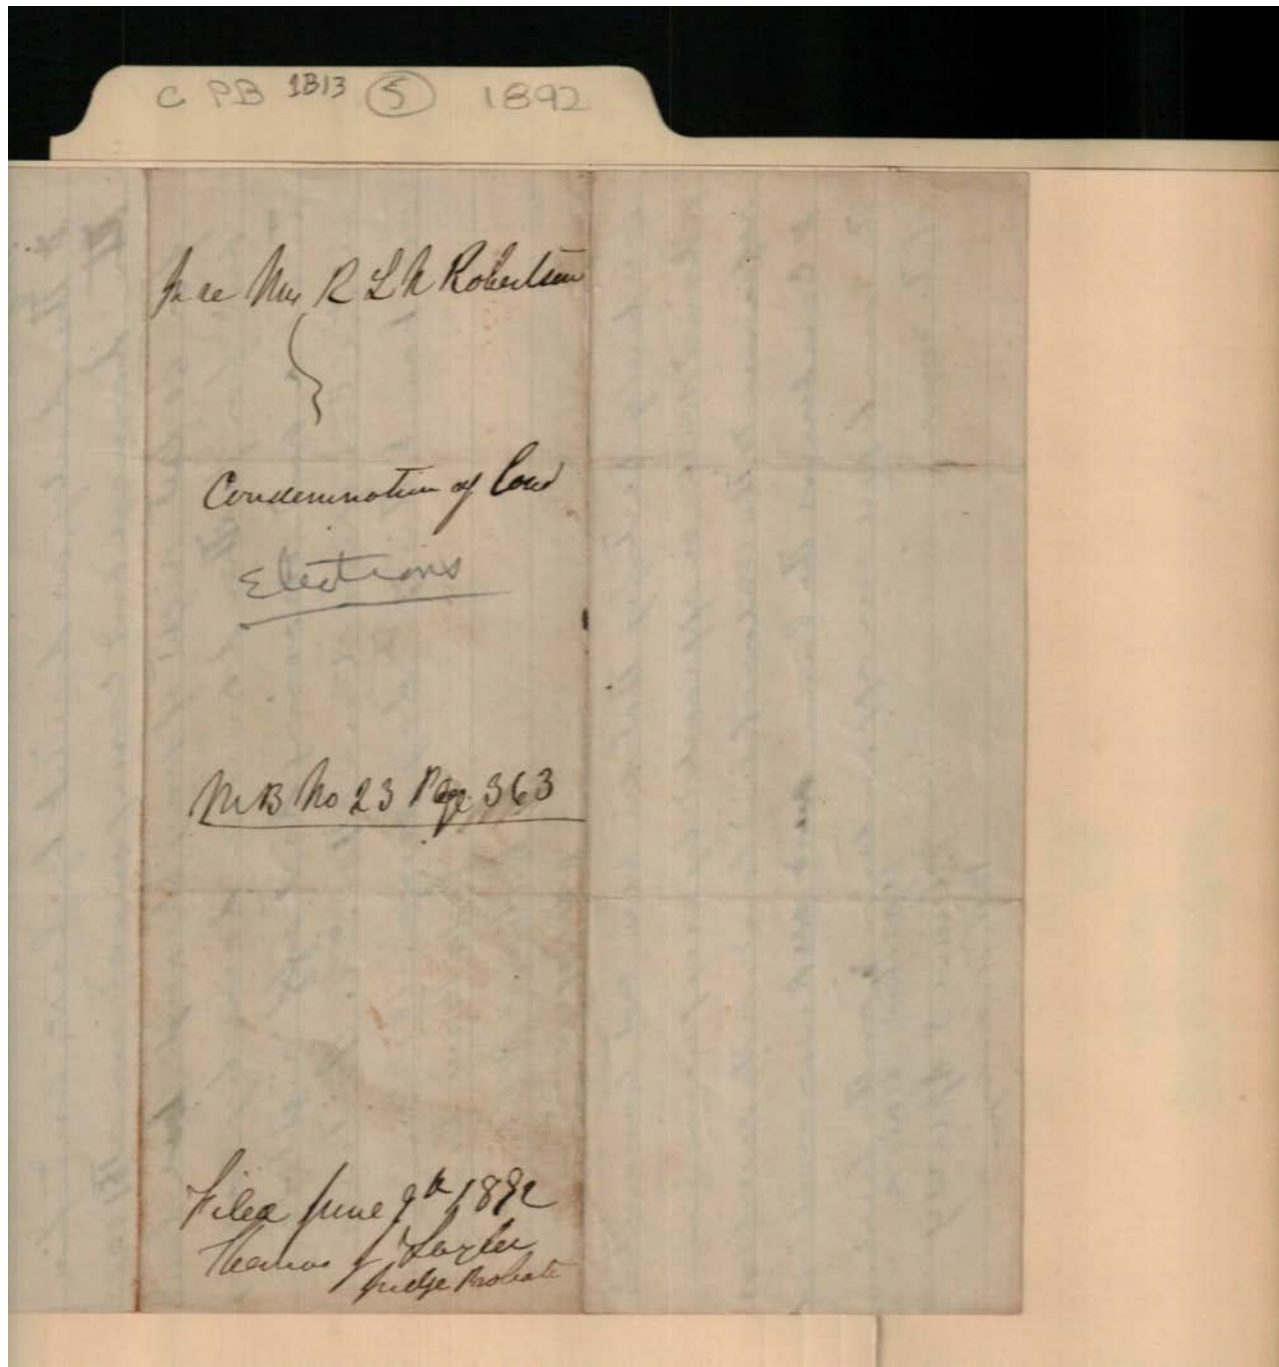 C PB 1B13 5 1892
In re Mrs R L N Robertson
Condemnation of
Elections
M B No 23 Page 363
Filed June 9th 1892
Thomas J Taylor
Judge Probate